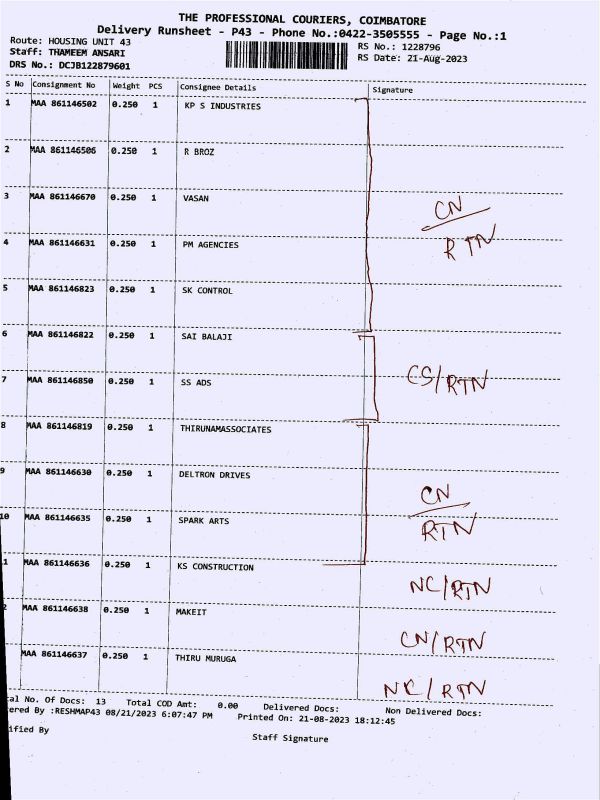 THE PROFESSIONAL COURIERS, COIMBATORE
Delivery Runsheet - P43 - Phone No.:0422-3505555 - Page No.:1
Route: HOUSING UNIT 43
RS No.: 1228796
Staff: THAMEEM ANSARI
RS Date: 21-Aug-2023
DRS No.: DCJB122879601
S No Consignment No Weight PCS Consignee Details Signature
1 MAA 861146502 0.250 1 KP S INDUSTRIES
2 MAA 861146506 0.250 1 R BROZ
3 MAA 861146670 0.250 1 VASAN
CN
4 MAA 861146631 0.250 1 PM AGENCIES
RTN
5 MAA 861146823 0.250 1 SK CONTROL
6 MAA 861146822 0.250 1 SAI BALAJI
7 MAA 861146850 0.250 1 SS ADS
CS/RTN
8 MAA 861146819 0.250 1 THIRUNAMASSOCIATES
9 MAA 861146630 0.250 1 DELTRON DRIVES
CN
10 MAA 861146635 0.250 1 SPARK ARTS
RTN
1 MAA 861146636 0.250 1 KS CONSTRUCTION
NC/RTN
2 MAA 861146638 0.250 1 MAKEIT
CN/RTN
MAA 861146637 0.250 1 THIRU MURUGA
NC/RTN
tal No. Of Docs: 13 Total COD Amt: 0.00 Delivered Docs: Non Delivered Docs:
tered By :RESHMAP43 08/21/2023 6:07:47 PM Printed On: 21-08-2023 18:12:45
ified By
Staff Signature